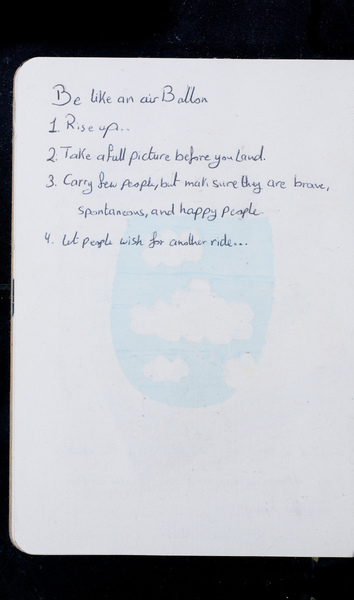 Be like an air Ballon
1. Rise up..
2. Take a full picture before you land.
3. Carry few people, but mak sure they are brave,
spontaneous, and happy people.
4. let people wish for another ride...